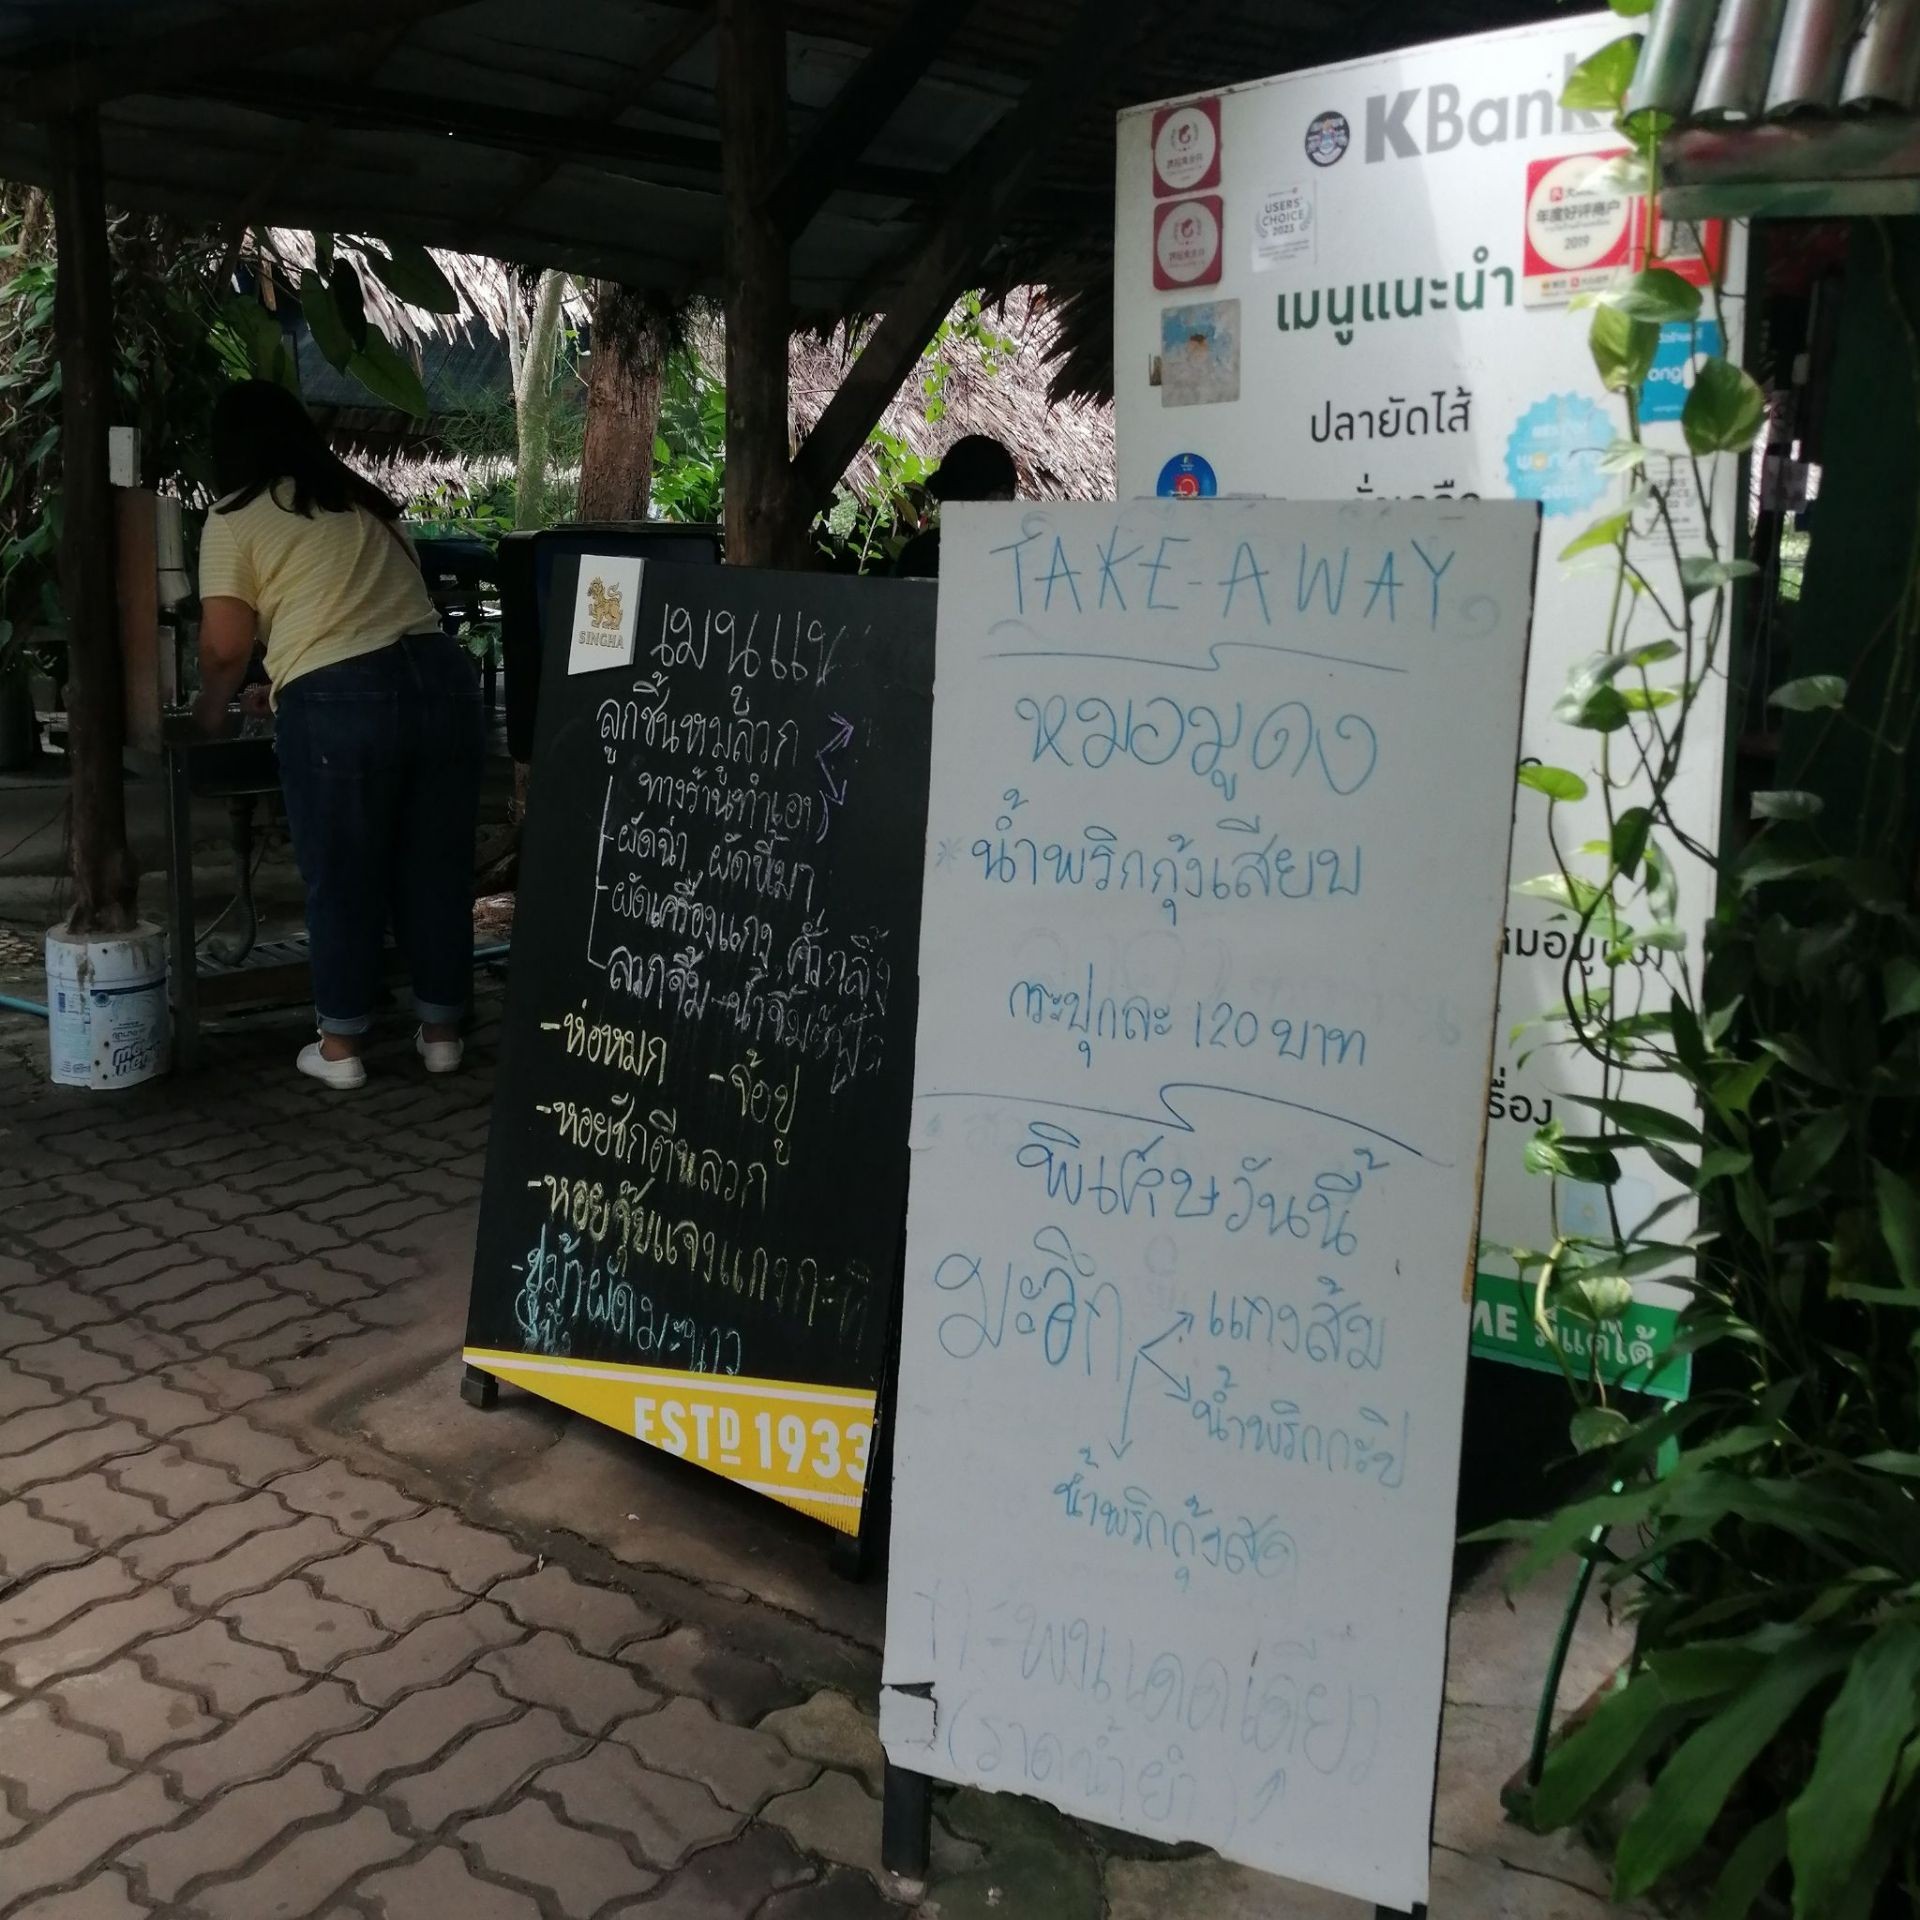 SINGHA
เมนูแน
ลูกชิ้นหมูลวก
ทางร้านทำเอง
-ผัดฉ่า ผัดขี้เมา
-ผัดเครื่องแกง, คั่วกลิ้ง
ลวกจิ้ม-น้ำจิ้ม
-ห่อหมก -จ๊อปู
-หอยชักตีนลวก
-หอยจุ๊บแจงแกงกะทิ
-ปูม้าผัดมะนาว
ESTD 1933
TAKE-AWAY
หมอมูดง
*น้ำพริกกุ้งเสียบ
กระปุกละ 120 บาท
พิเศษวันนี้
มะอึก
แกงส้ม
น้ำพริกกะปิ
น้ำพริกกุ้งสด
แดดเดียว
(ราดน้ำยำ)
KBank
USERS'
CHOICE
2023
年度好评商户
2019
เมนูแนะนำ
ปลายัดไส้